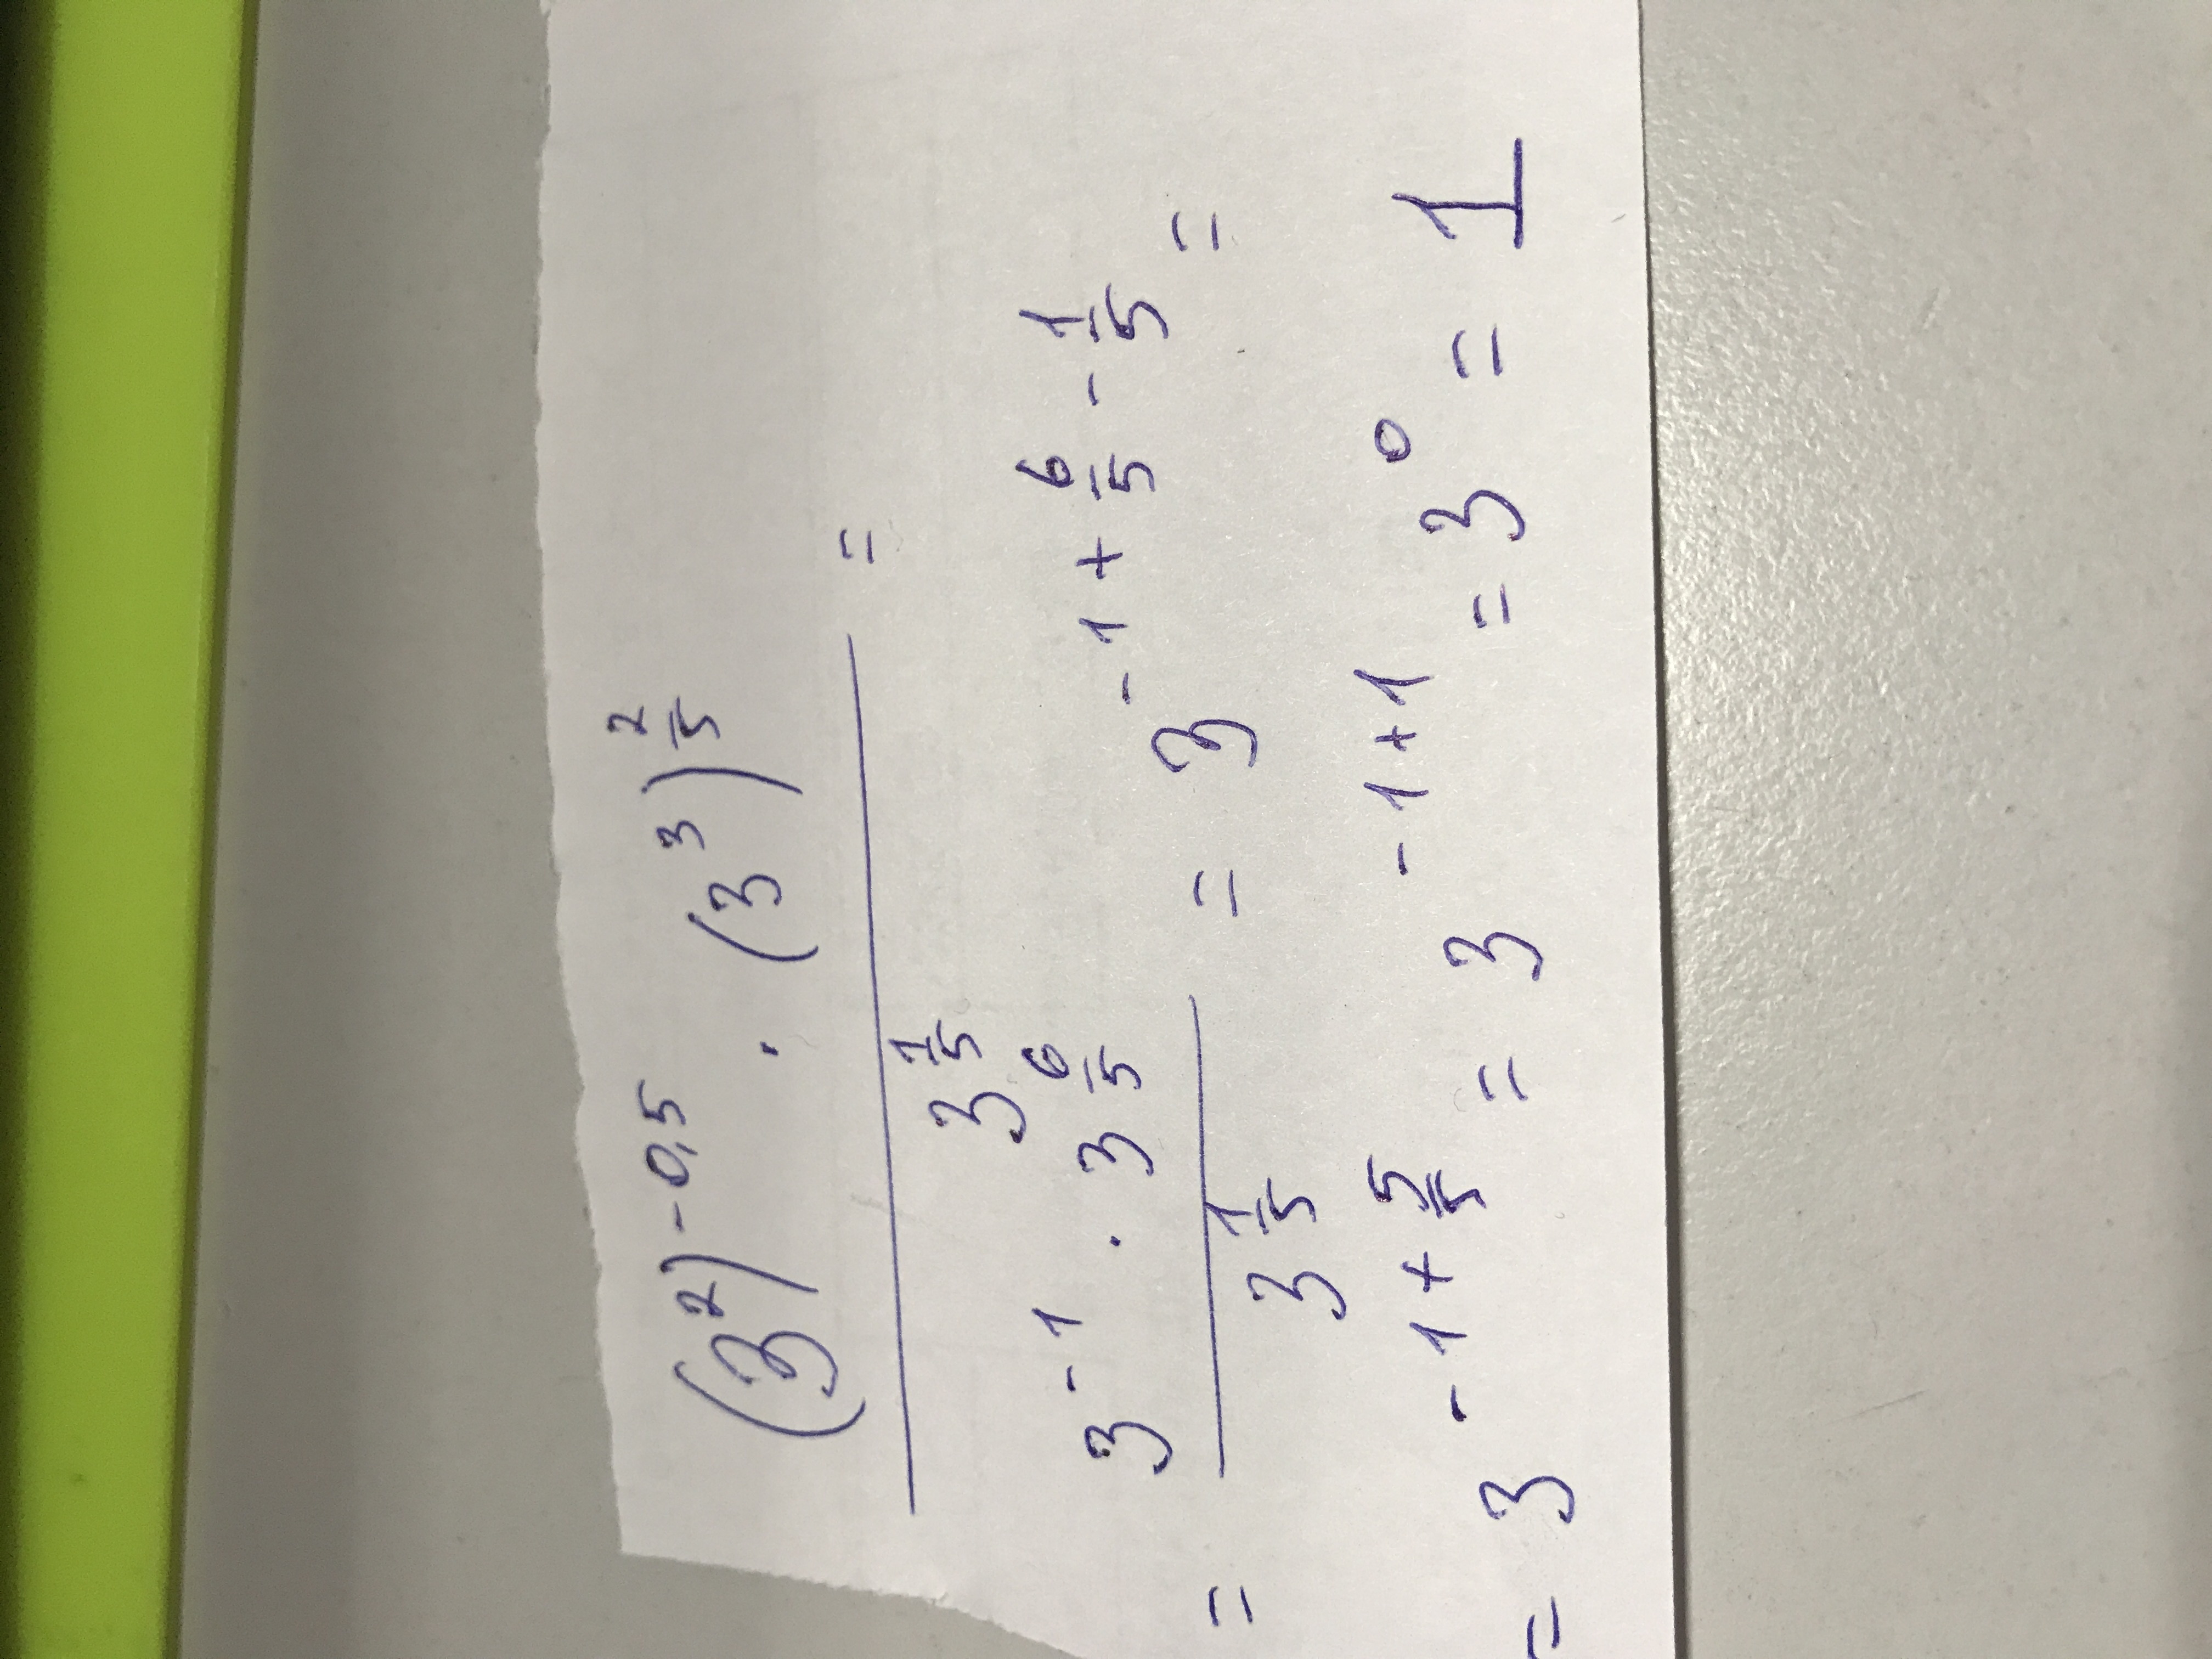 (3²)^-0,5 · (3³)^2/5
———————— =
3^1/5
3^-1 · 3^6/5
= ———————— = 3^-1+6/5-1/5 =
3^1/5
= 3^-1+5/5 = 3^-1+1 = 3^0 = 1